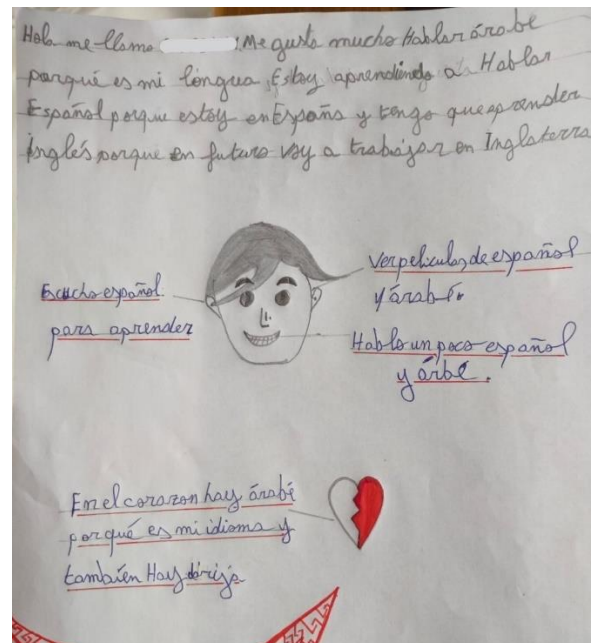 Hola me llamo . Me gusta mucho Hablar árabe
porqué es mi lingua, Estoy aprendiendo a Hablar
Español porque estoy en España y tengo que aprender
inglés porque en futuro voy a trabajar en Inglaterra
Escucho español
para aprender
Ver peliculas de español
y árabe.
Hablo un poco español
y árbé.
En el corazon hay árabé
porqué es mi idioma y
también Hay dárija